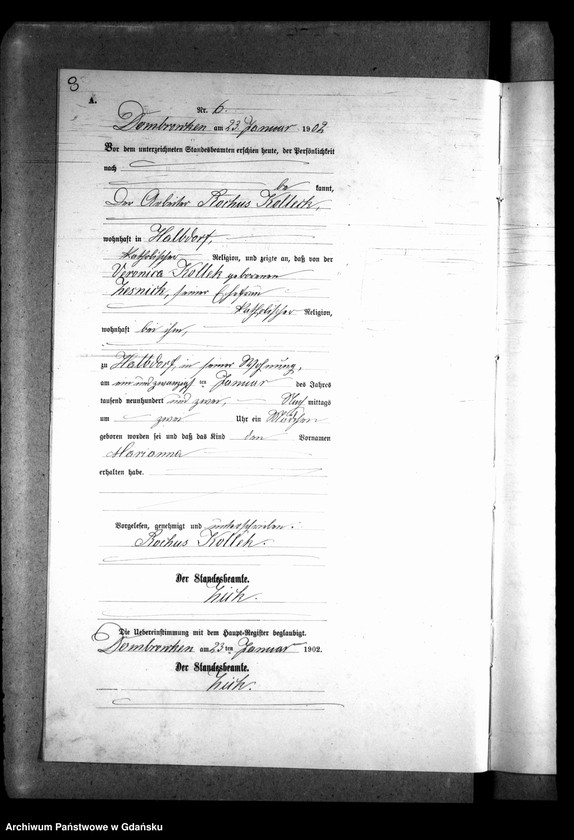 8
A.
Nr. 6.
Dombrowken am 23. Januar 1902
Vor dem unterzeichneten Standesbeamten erschien heute, der Persönlichkeit
nach
be kannt,
Der Arbeiter Rochus Kolleck,
wohnhaft in Halbdorf,
katholischer Religion, und zeigte an, daß von der
Veronica Kollek geborenen
Lesnick, seiner Ehefrau
katholischer Religion,
wohnhaft bei ihm,
zu Halbdorf, in seiner Wohnung,
am ein und zwanzigsten Januar des Jahres
tausend neunhundert und zwei, Nach mittags
um zwei Uhr ein Mädchen
geboren worden sei und daß das Kind den Vornamen
Marianna
erhalten habe.
Vorgelesen, genehmigt und unterschrieben:
Rochus Kollek.
Der Standesbeamte.
Die Uebereinstimmung mit dem Haupt-Register beglaubigt.
Dombrowken am 23 ten Januar 1902.
Der Standesbeamte.
Archiwum Państwowe w Gdańsku